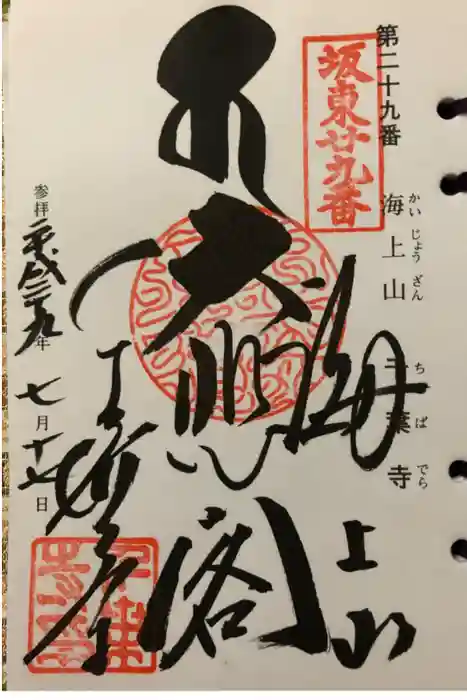 第二十九番
海上山 千葉寺
かいじょうざん ちばでら
坂東廿九番
海上山
大悲閣
千葉寺
参拝 平成二十九年 七月十七日